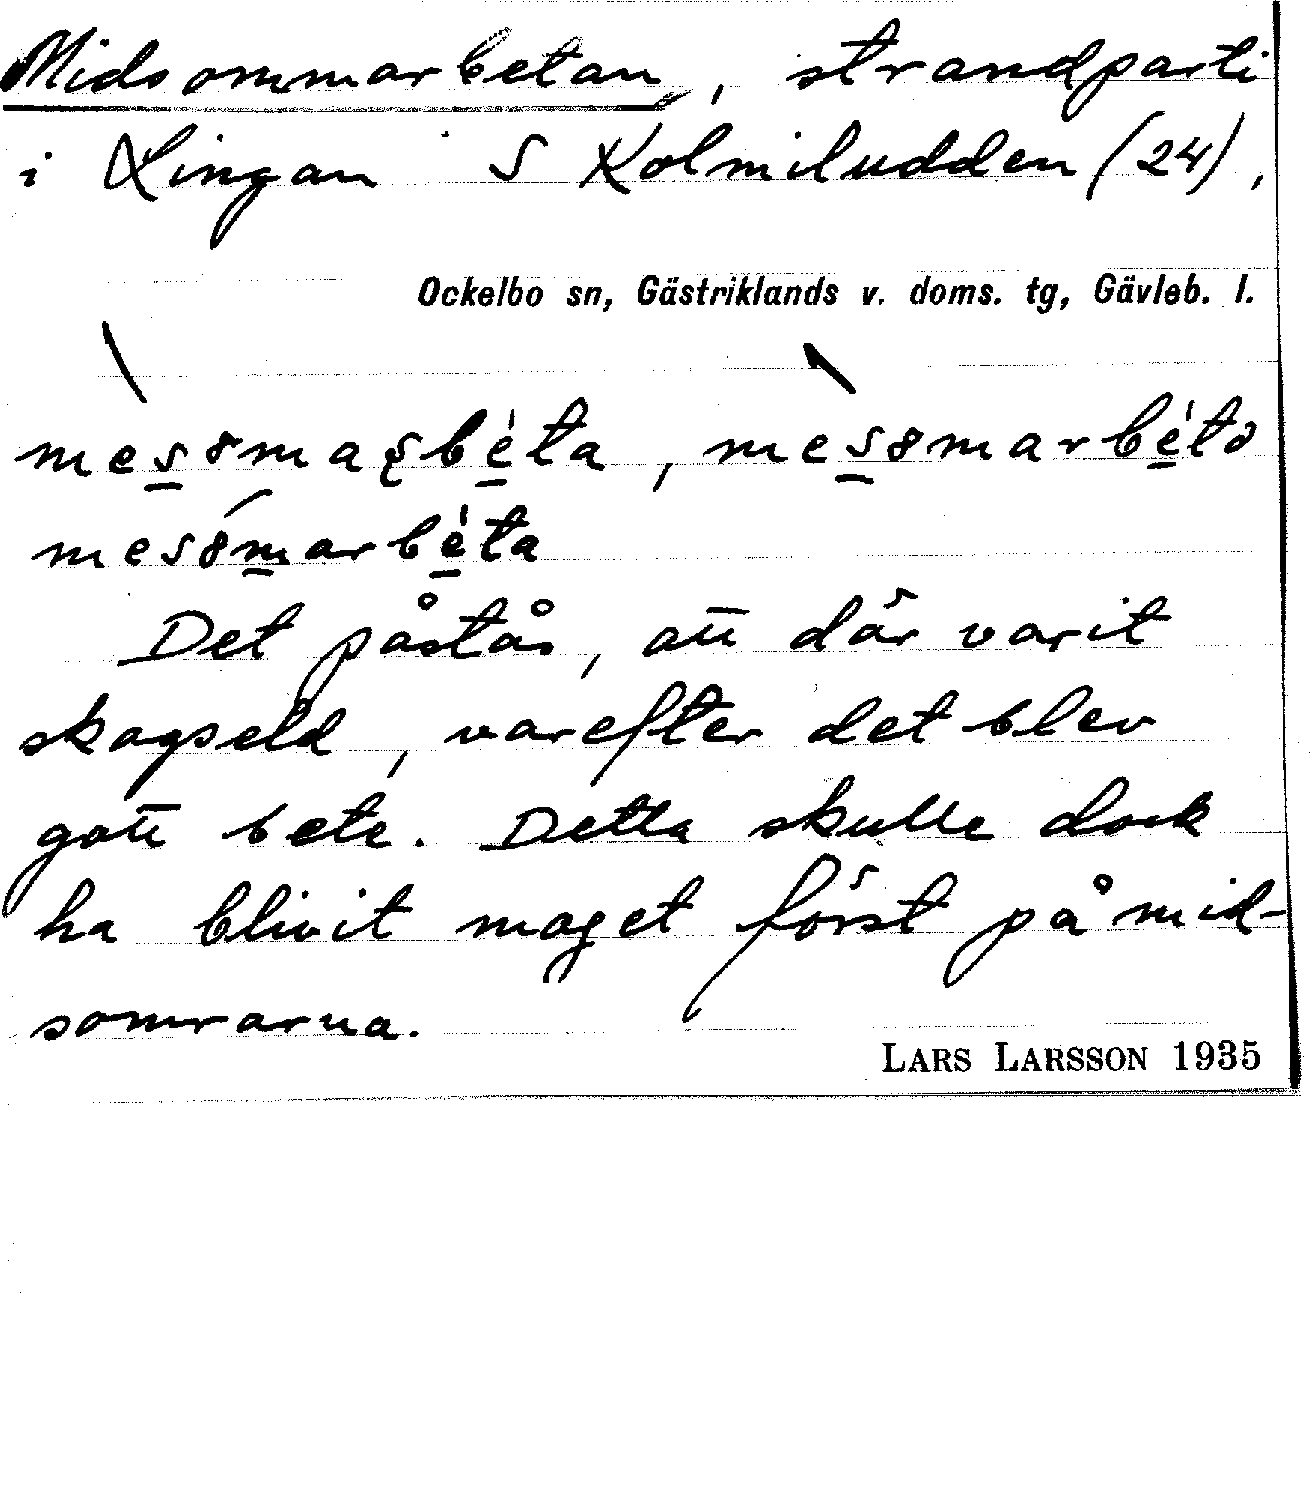 Midsommarbetan, strandparti
i Lingan S Kolmiludden (24),
Ockelbo sn, Gästriklands v. doms. tg, Gävleb. l.
Det påstås, att där varit
skogseld, varefter det blev
gott bete. Detta skulle dock
ha blivit maget först på mid-
somrarna.
LARS LARSSON 1935